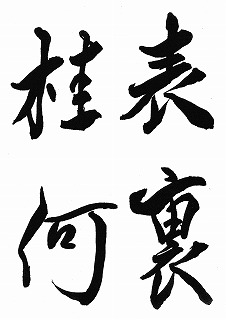 表裏
桂何